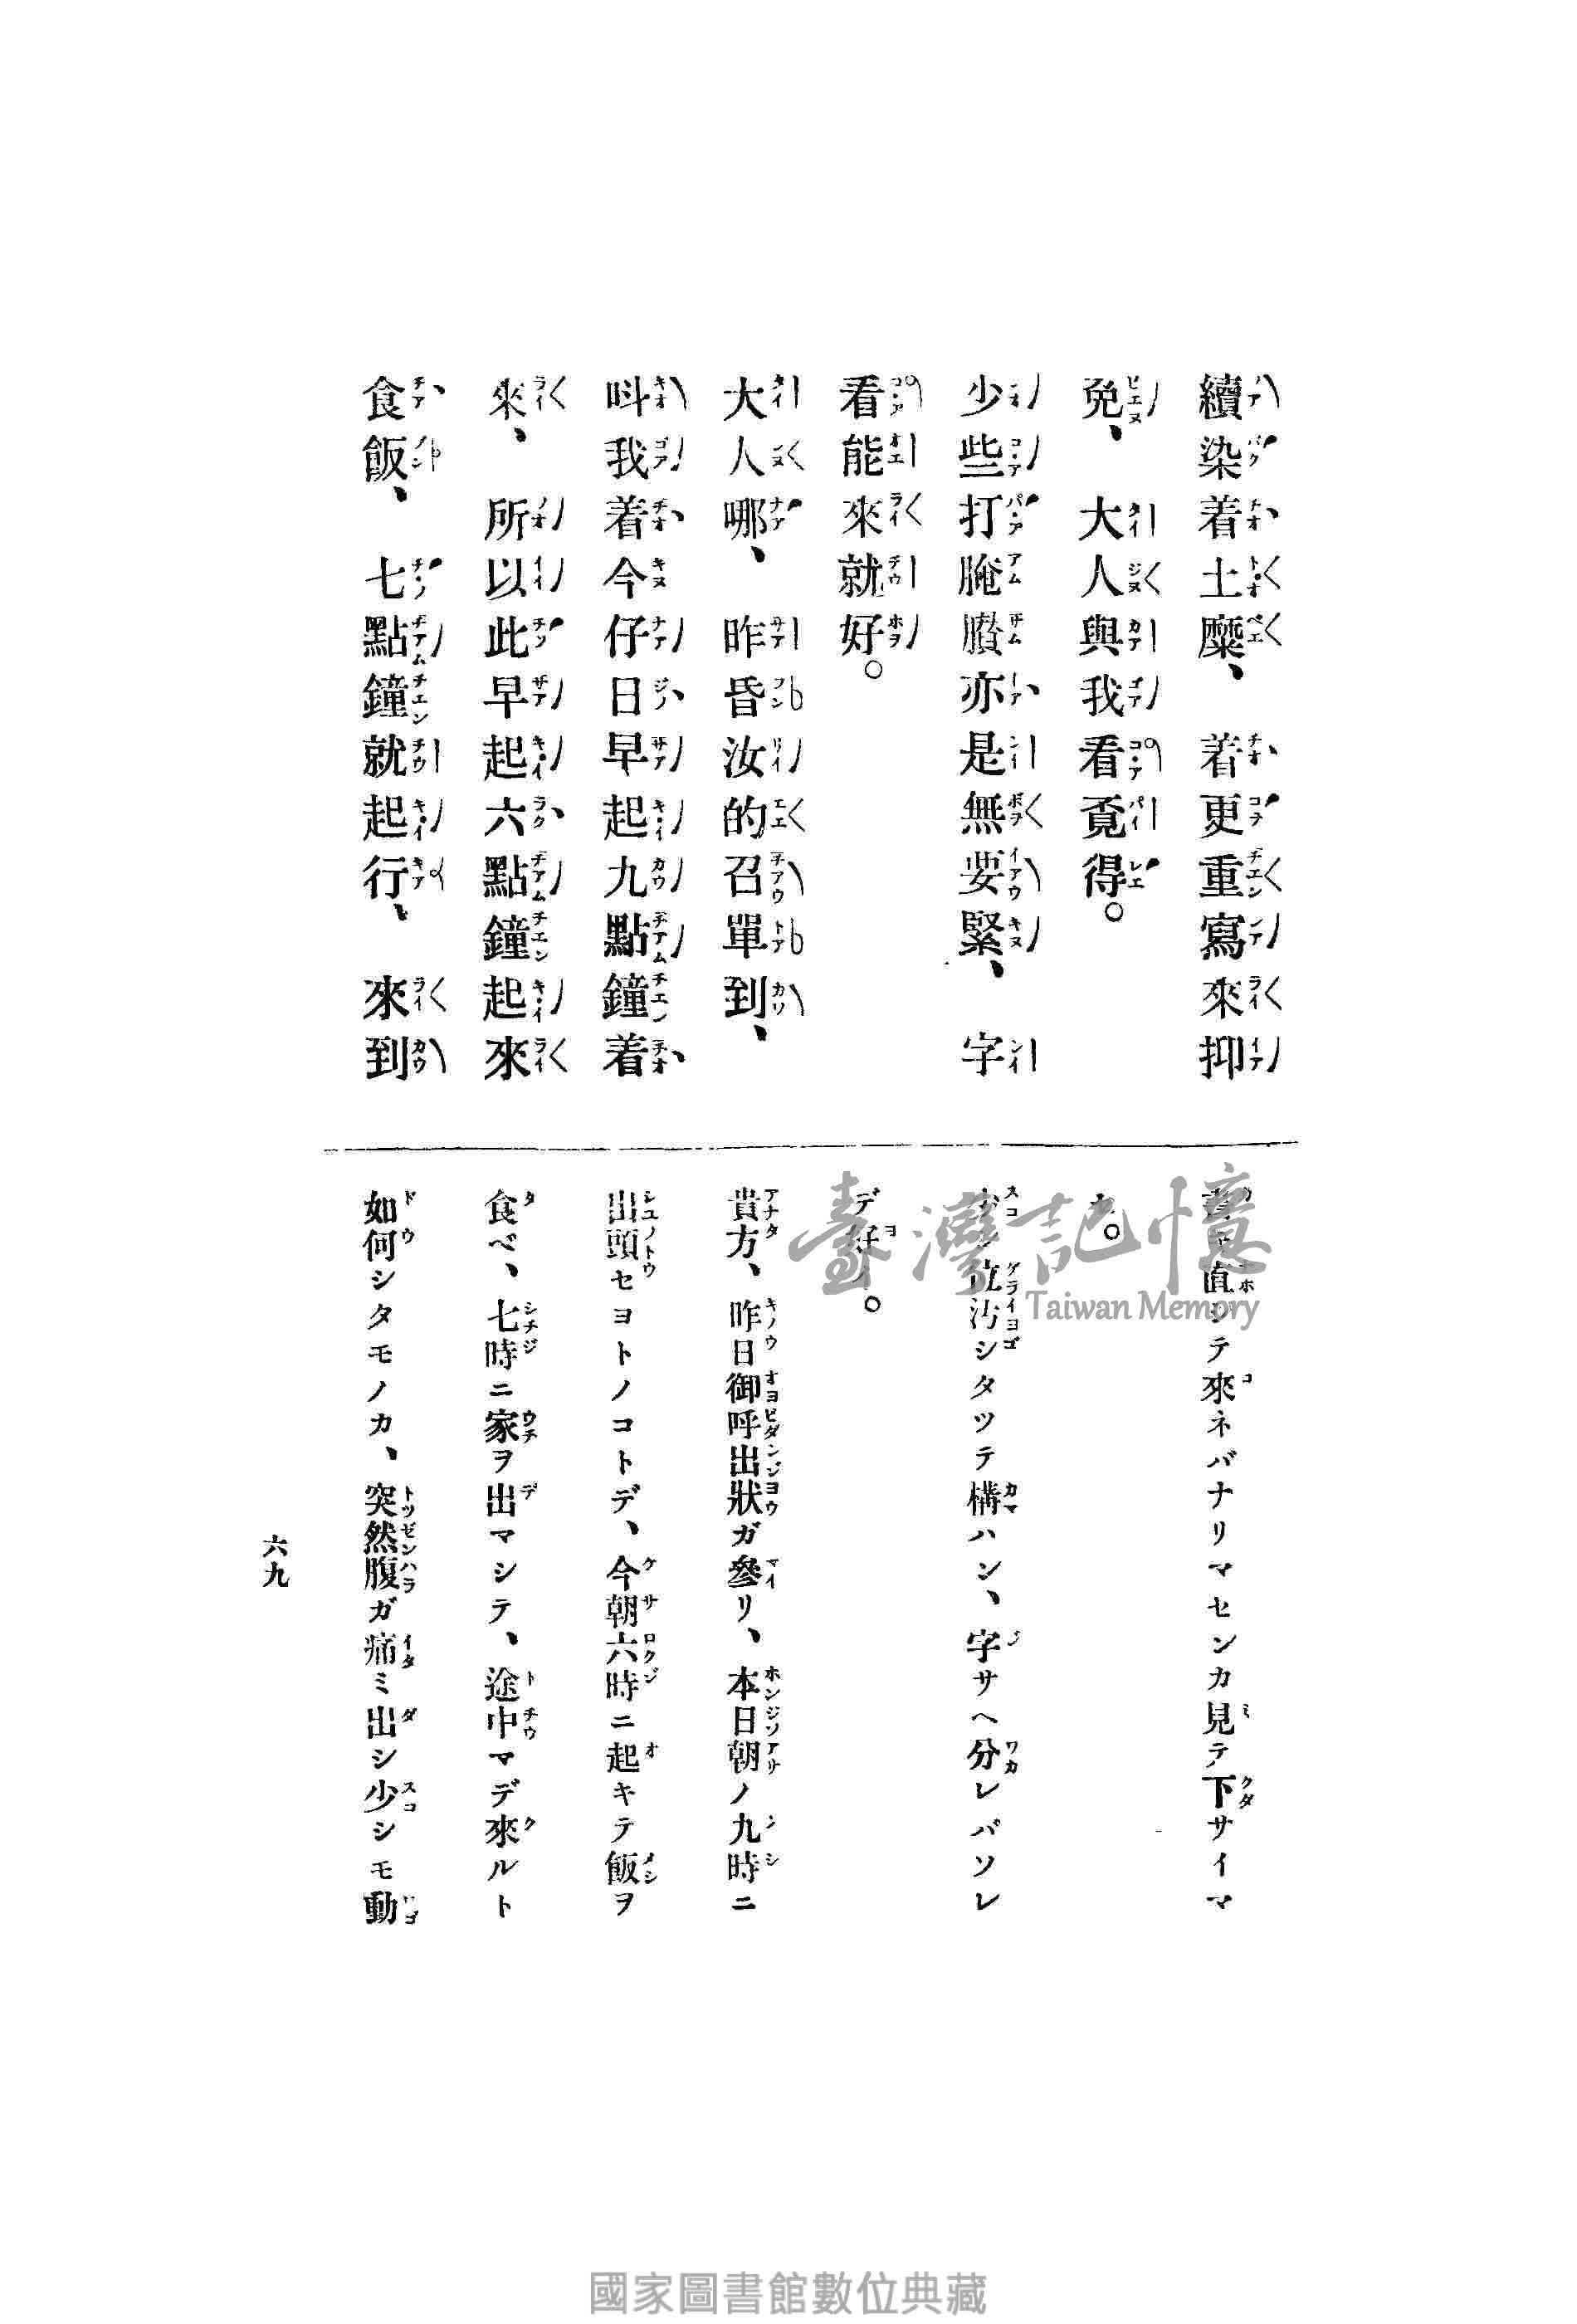 續染着土糜、着更重寫來抑
免、大人與我看覔得。
少些打腌臢亦是無要緊、字
看能來就好。
大人哪、昨昏汝的召單到、
叫我着今仔日早起九點鐘着
來、所以此早起六點鐘起來
食飯、七點鐘就起行、來到
直シテ來ネバナリマセンカ見テ下サイマ
セ。
少シ位汚シタツテ構ハン、字サヘ分レバソレ
デ好イ。
貴方、昨日御呼出狀ガ參リ、本日朝ノ九時ニ
出頭セヨトノコトデ、今朝六時ニ起キテ飯ヲ
食ベ、七時ニ家ヲ出マシテ、途中マデ來ルト
如何シタモノカ、突然腹ガ痛ミ出シ少シモ動
六九
臺灣記憶
Taiwan Memory
國家圖書館數位典藏